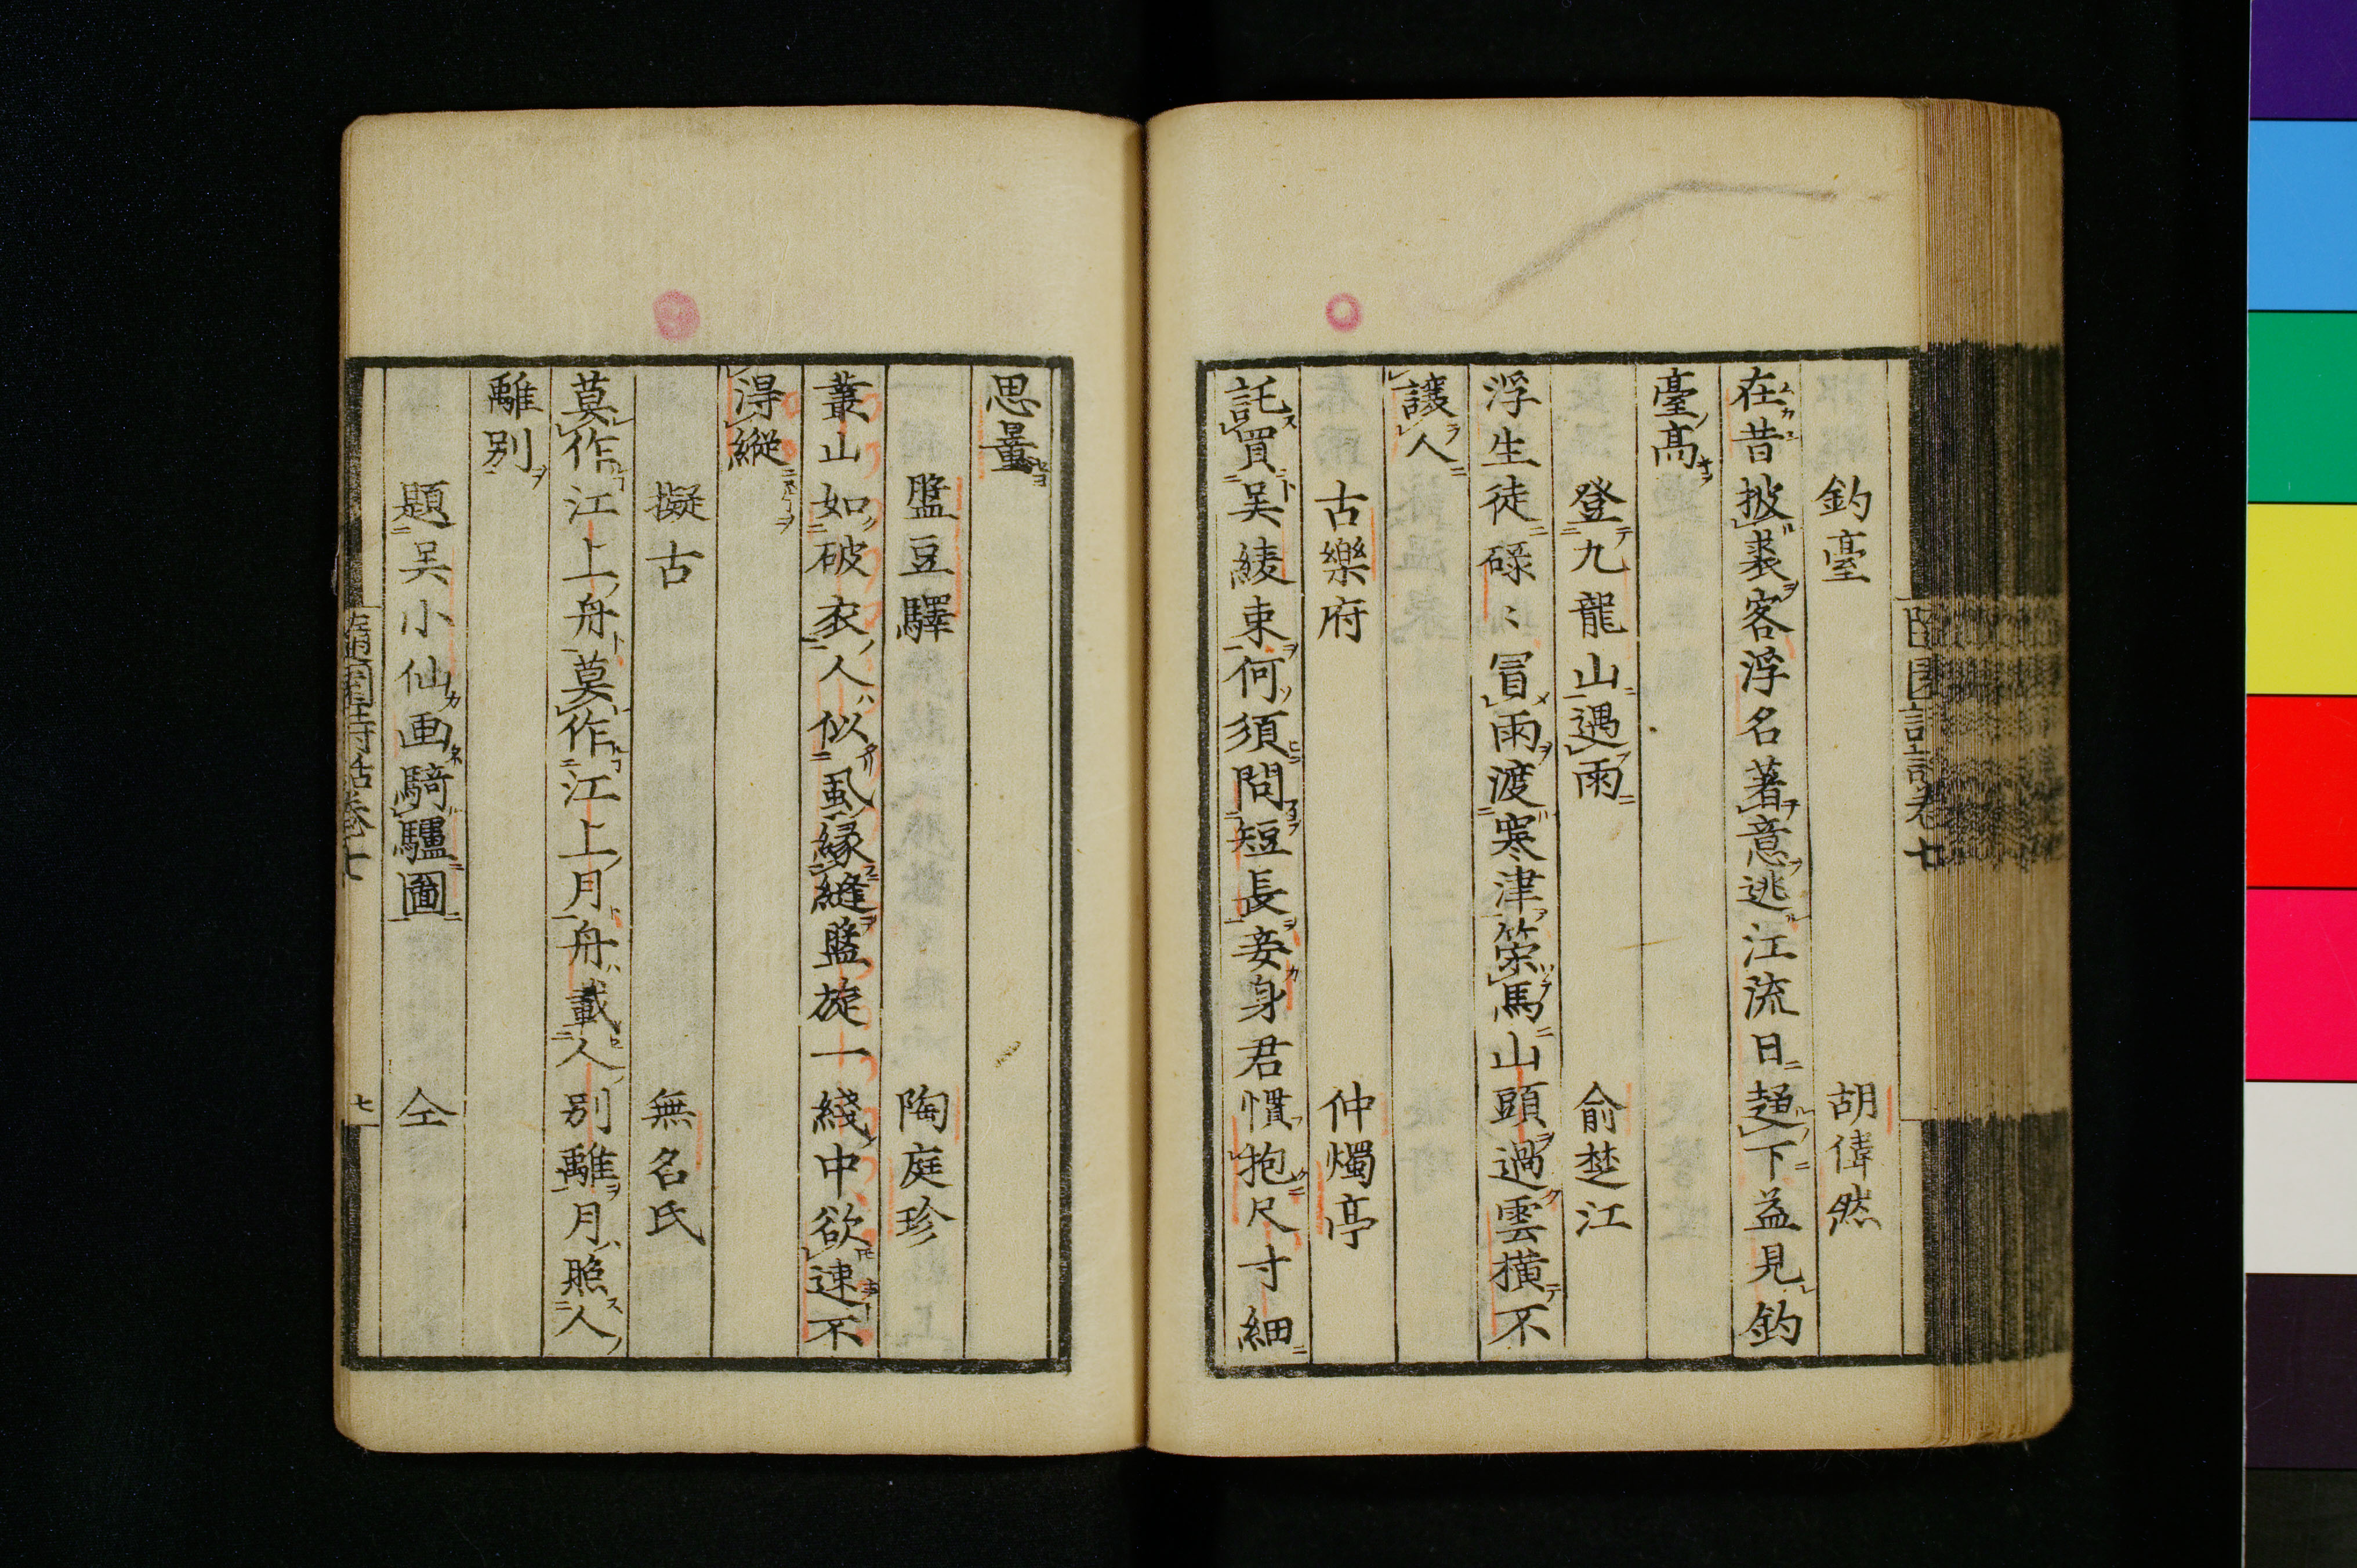 釣臺　胡偉然
在昔披裘客浮名著意逃江流日趨下益見釣
臺髙
登九龍山遇雨　俞楚江
浮生徒碌〻冒雨渡寒津策馬山頭過雲横不
讓人
古樂府　仲燭亭
託買吴綾束何須問短長妾身君慣抱尺寸細
思量
盤豆驛　陶庭珍
叢山如破衣人似虱縁縫盤旋一綫中欲速不
得縱
擬古　無名氏
莫作江上舟莫作江上月舟載人别離月照人
離别
題吴小仙画騎驢圖　仝
隨園詩話巻七
七